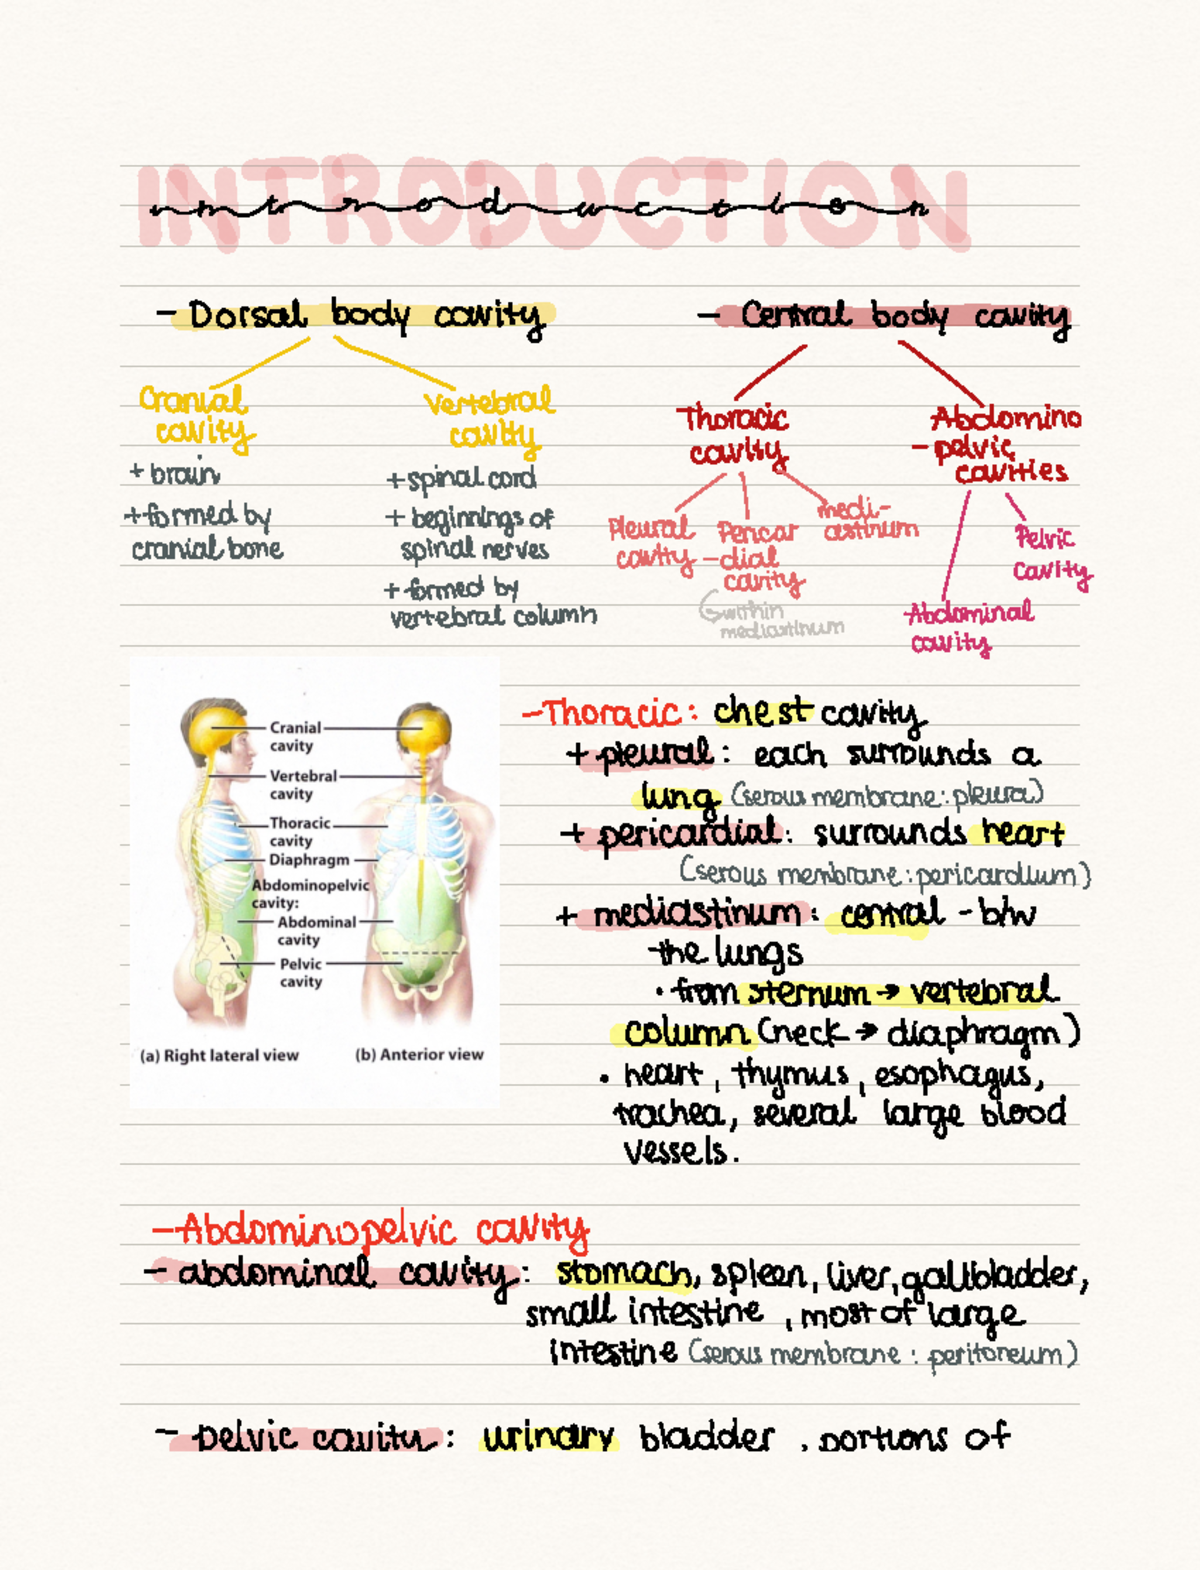 INTRODUCTION
introduction
- Dorsal body cavity
Cranial
cavity
+ brain
+ formed by
cranial bone
Vertebral
cavity
+ spinal cord
+ beginnings of
spinal nerves
+ formed by
vertebral column
- Central body cavity
Thoracic
cavity
Pleural
cavity
Pericar
-dial
cavity
within
mediastinum
medi-
astinum
Abdomino
-pelvic
cavities
Abdominal
cavity
Pelvic
cavity
Cranial
cavity
Vertebral
cavity
Thoracic
cavity
Diaphragm
Abdominopelvic
cavity:
Abdominal
cavity
Pelvic
cavity
(a) Right lateral view
(b) Anterior view
-Thoracic: chest cavity
+ pleural: each surrounds a
lung (serous membrane: pleura)
+ pericardial: surrounds heart
(serous membrane: pericardium)
+ mediastinum: central - b/w
the lungs
• from sternum → vertebral
column (neck → diaphragm)
• heart, thymus, esophagus,
trachea, several large blood
vessels.
-Abdominopelvic cavity
- abdominal cavity: stomach, spleen, liver, gallbladder,
small intestine, most of large
intestine (serous membrane: peritoneum)
- pelvic cavity: urinary bladder, portions of